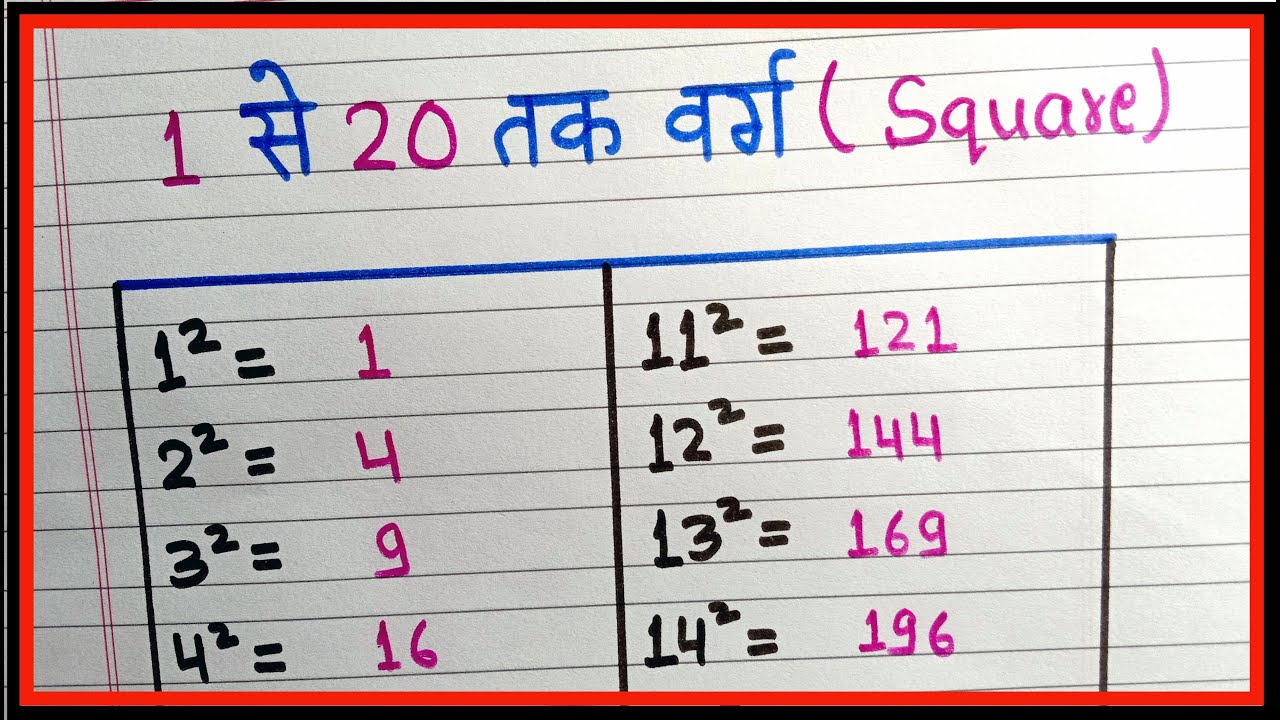 1 से 20 तक वर्ग ( Square)
1² = 1 11² = 121
2² = 4 12² = 144
3² = 9 13² = 169
4² = 16 14² = 196